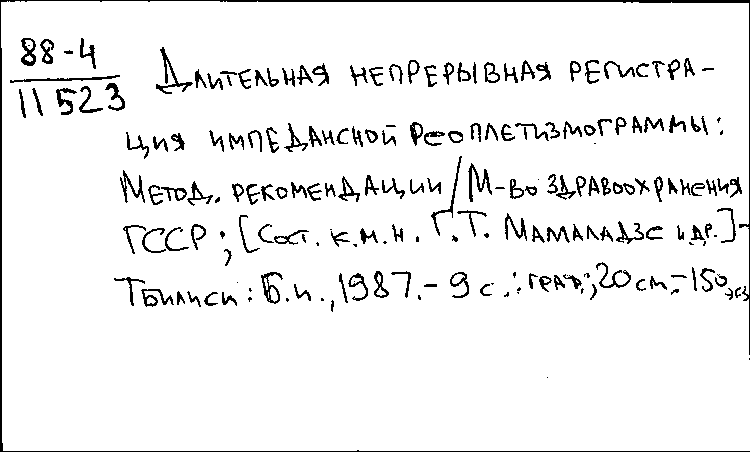 88-4
11523
Длительная непрерывная регистра-
ция импедансной реоплетизмограммы:
Метод. рекомендации / М-во здравоохранения
ГССР; [Сост. к.м.н. Г.Т. Мамаладзе и др.]-
Тбилиси: Б.и., 1987.- 9 с.: граф; 20 см.- 150 экз